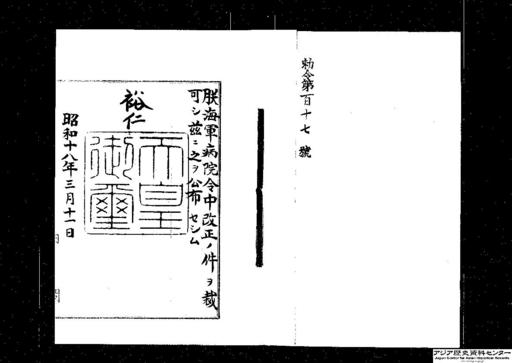 勅令第百十七號
朕海軍病院令中改正ノ件ヲ裁
可シ茲ニ之ヲ公布セシム
裕仁
天皇
御璽
昭和十八年三月十一日
内閣
アジア歴史資料センター
Japan Center for Asian Historical Records